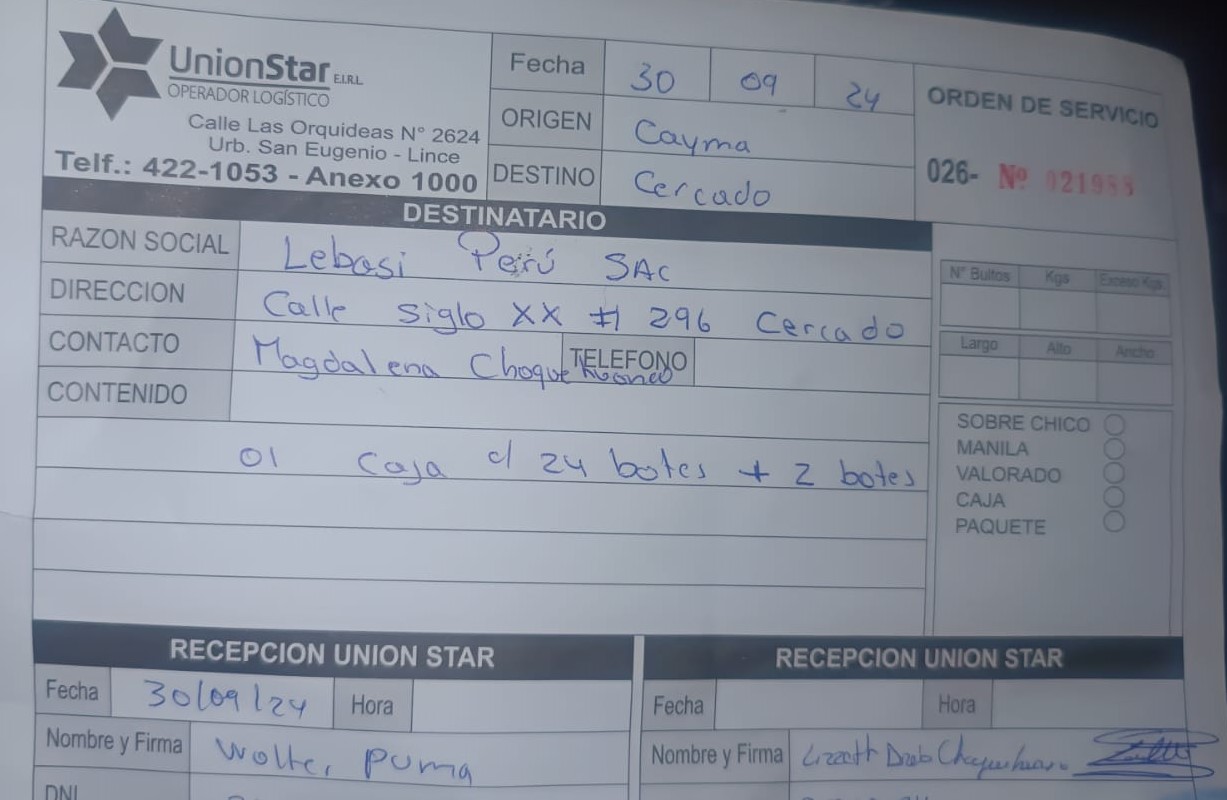 UnionStar E.I.R.L.
OPERADOR LOGÍSTICO
Calle Las Orquideas N° 2624
Urb. San Eugenio - Lince
Telf.: 422-1053 - Anexo 1000
Fecha 30 09 24
ORIGEN Cayma
DESTINO Cercado
ORDEN DE SERVICIO
026- Nº 021988
DESTINATARIO
RAZON SOCIAL Lebasi Perú SAC
DIRECCION Calle Siglo XX # 296 Cercado
CONTACTO Magdalena Choquehuanca TELEFONO
CONTENIDO
01 Caja c/ 24 botes + 2 botes
N° Bultos Kgs Exceso Kgs
Largo Alto Ancho
SOBRE CHICO
MANILA
VALORADO
CAJA
PAQUETE
RECEPCION UNION STAR
Fecha 30/09/24 Hora
Nombre y Firma Walter Puma
DNI
RECEPCION UNION STAR
Fecha Hora
Nombre y Firma